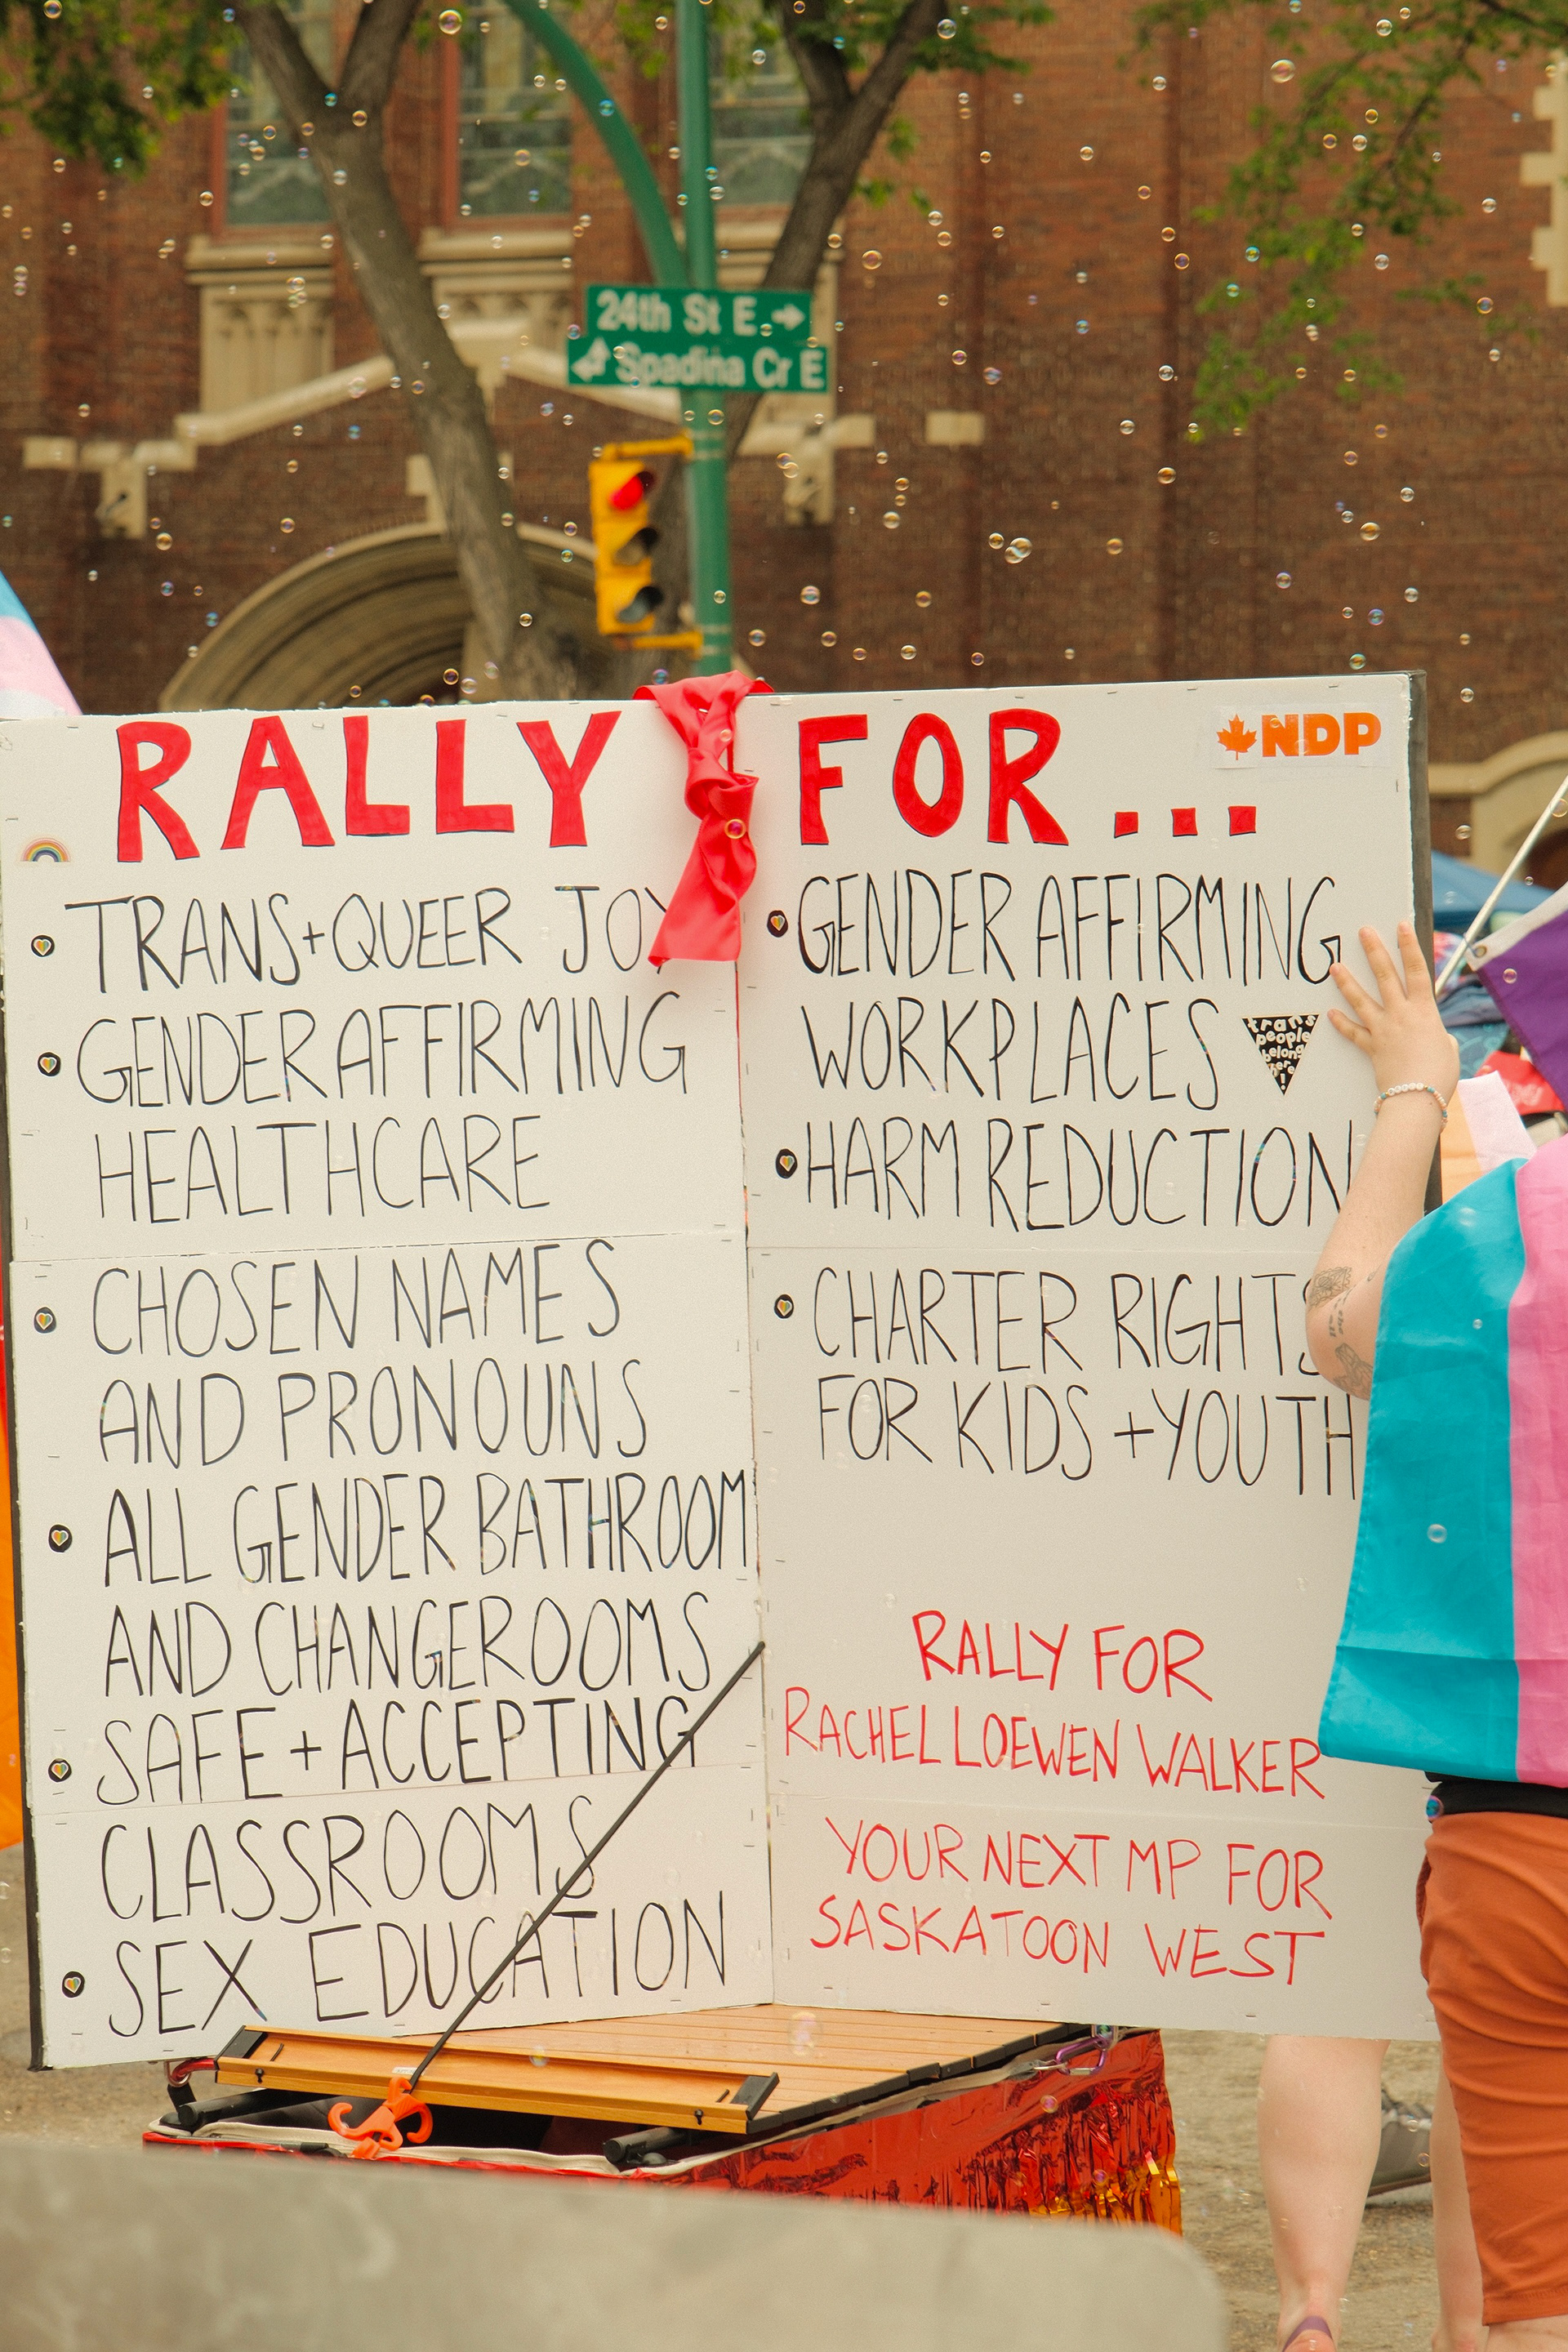 24th St E →
Spadina Cr E
RALLY FOR...
NDP
TRANS+QUEER JOY
GENDER AFFIRMING
HEALTHCARE
CHOSEN NAMES
AND PRONOUNS
ALL GENDER BATHROOM
AND CHANGEROOMS
SAFE + ACCEPTING
CLASSROOMS
SEX EDUCATION
GENDER AFFIRMING
WORKPLACES
trans
people
belong
here
!
HARM REDUCTION
CHARTER RIGHTS
FOR KIDS + YOUTH
RALLY FOR
RACHEL LOEWEN WALKER
YOUR NEXT MP FOR
SASKATOON WEST